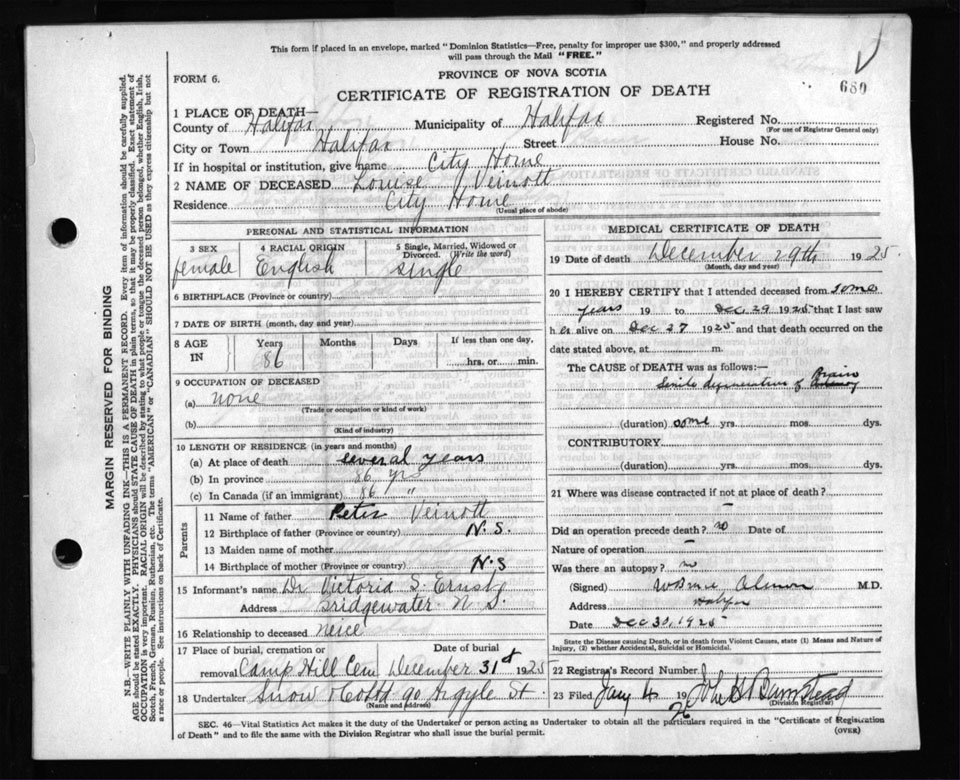 This form if placed in an envelope, marked "Dominion Statistics—Free, penalty for improper use $300," and properly addressed
will pass through the Mail "FREE."
FORM 6.
PROVINCE OF NOVA SCOTIA
680
CERTIFICATE OF REGISTRATION OF DEATH
1 PLACE OF DEATH—
County of Halifax Municipality of Halifax Registered No.
(For use of Registrar General only)
City or Town Halifax Street House No.
If in hospital or institution, give name City Home
2 NAME OF DECEASED Louise Veinott
Residence City Home
(Usual place of abode)
PERSONAL AND STATISTICAL INFORMATION
3 SEX 4 RACIAL ORIGIN 5 Single, Married, Widowed or
Divorced. (Write the word)
female English single
6 BIRTHPLACE (Province or country)
7 DATE OF BIRTH (month, day and year)
8 AGE IN Years Months Days If less than one day,
86 hrs. or min.
9 OCCUPATION OF DECEASED
(a) none
(Trade or occupation or kind of work)
(b)
(Kind of industry)
10 LENGTH OF RESIDENCE (in years and months)
(a) At place of death several years
(b) In province 86 yrs
(c) In Canada (if an immigrant) 86 "
Parents
11 Name of father Peter Veinott
12 Birthplace of father (Province or country) N.S.
13 Maiden name of mother
14 Birthplace of mother (Province or country) N.S
15 Informant's name Dr Victoria S. Ernst
Address Bridgewater N.S.
16 Relationship to deceased neice
17 Place of burial, cremation or Date of burial
removal Camp Hill Cem December 31st 1925
18 Undertaker Snow & Co Ltd 90 Argyle St.
(Name and address)
MEDICAL CERTIFICATE OF DEATH
19 Date of death December 29th 1925
(Month, day and year)
20 I HEREBY CERTIFY that I attended deceased from some
years 19 to Dec 29 1925 that I last saw
h er alive on Dec 27 1925 and that death occurred on the
date stated above, at m.
The CAUSE of DEATH was as follows:—
Senile degeneration of Brain
(duration) some yrs. mos. dys.
CONTRIBUTORY
(duration) yrs. mos. dys.
21 Where was disease contracted if not at place of death?
–
Did an operation precede death? no Date of
Nature of operation –
Was there an autopsy? no
(Signed) W Bruce Almon M.D.
Address Halifax
Date Dec 30, 1925
State the Disease causing Death, or in death from Violent Causes, state (1) Means and Nature of
Injury, (2) whether Accidental, Suicidal or Homicidal.
22 Registrar's Record Number
23 Filed Jany 4 1926 John H Barnstead
(Division Registrar)
SEC. 46—Vital Statistics Act makes it the duty of the Undertaker or Person acting as Undertaker to obtain all the particulars required in the "Certificate of Registration
of Death" and to file the same with the Division Registrar who shall issue the burial permit.
(OVER)
MARGIN RESERVED FOR BINDING
N.B.—WRITE PLAINLY WITH UNFADING INK—THIS IS A PERMANENT RECORD. Every item of information should be carefully supplied.
AGE should be stated EXACTLY. PHYSICIANS should STATE CAUSE OF DEATH in plain terms, so that it may be properly classified. Exact statement of
OCCUPATION is very important. RACIAL ORIGIN will be described by stating to what people or tongue the deceased person belonged, whether English, Irish,
Scotch, French, German, Russian, Ruthenian, etc. The terms "AMERICAN" or "CANADIAN" SHOULD NOT BE USED as they express citizenship but not
a race or people. See instructions on back of Certificate.